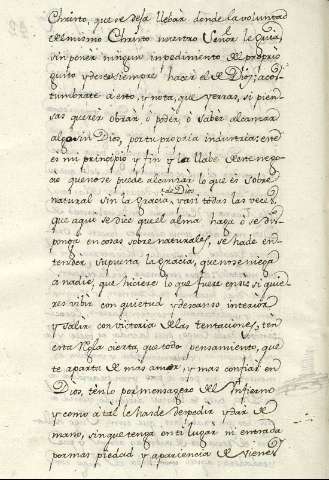 Christo, que se deja llebar donde la voluntad
del mismo Christo nuestro Señor le guia,
sin poner ningun impedimento del proprio
gusto y deseé siempre hacer el de Dios; acos-
tumbrate á esto, y nota, que yerras, si pien-
sas querer obrar, ó poder, ó saber alcanzar
algo sin Dios, por tu propria industria; ene
es mi principio y fin y la llabe de este nego-
cio que no se puede alcanzar lo que es sobre
natural sin la gracia, y asi todas las veces,
de Dios
que aqui se dice que el alma haga ó se dis-
ponga en cosas sobre naturales, se ha de en-
tender, supuesta la gracia, que no se niega
á nadie, que hiciere lo que fuere en si: si quie-
res vibir con quietud y descanso interior
y salir con victoria de las tentaciones, ten
esta Regla cierta, que todo pensamiento, que
te aparta de mas amor, y mas confiar en
Dios, tenlo por mensagero del Infierno
y como á tal le harde despedir, y dar de
mano, sin que tenga en ti lugar ni entrada
por mas piedad y apariencia de vienes